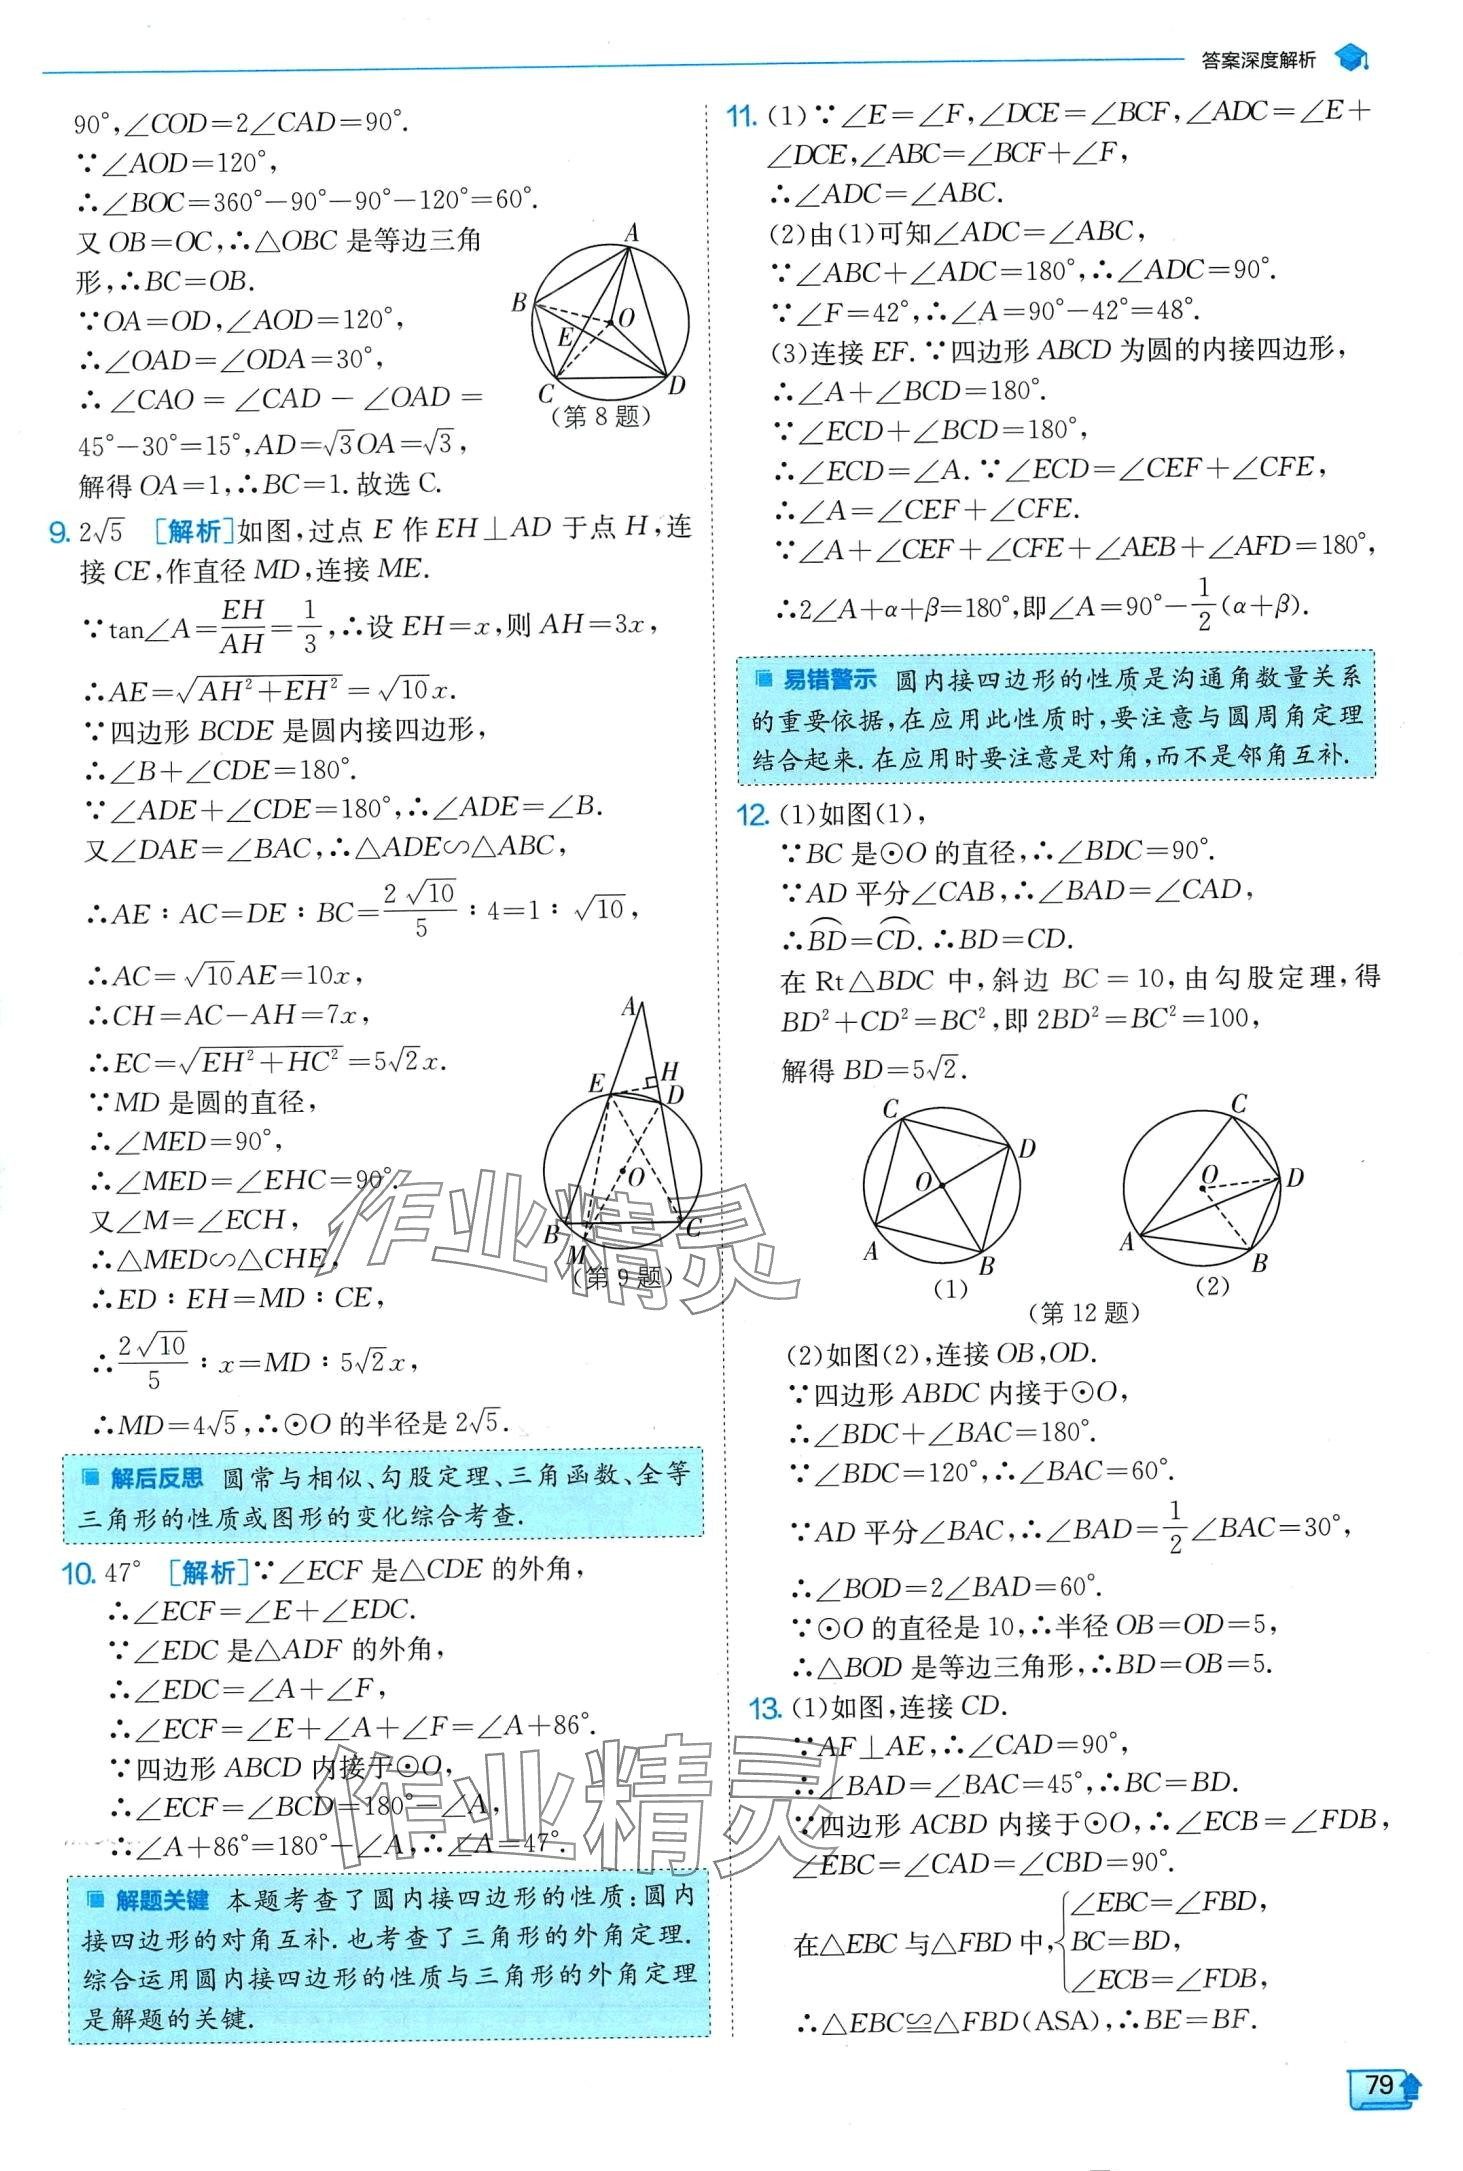 答案深度解析
90°,∠COD=2∠CAD=90°.
∵∠AOD=120°,
∴∠BOC=360°-90°-90°-120°=60°.
又OB=OC,∴△OBC是等边三角
形,∴BC=OB.
∵OA=OD,∠AOD=120°,
∴∠OAD=∠ODA=30°,
∴∠CAO=∠CAD-∠OAD=
45°-30°=15°,AD=√3OA=√3,
解得OA=1,∴BC=1.故选C.
A
B
O
E
C
D
(第8题)
9. 2√5 [解析]如图,过点E作EH⊥AD于点H,连
接CE,作直径MD,连接ME.
∵tan∠A=EH/AH=1/3,∴设EH=x,则AH=3x,
∴AE=√(AH²+EH²)=√10x.
∵四边形BCDE是圆内接四边形,
∴∠B+∠CDE=180°.
∵∠ADE+∠CDE=180°,∴∠ADE=∠B.
又∠DAE=∠BAC,∴△ADE∽△ABC,
∴AE:AC=DE:BC=2√10/5:4=1:√10,
∴AC=√10AE=10x,
∴CH=AC-AH=7x,
∴EC=√(EH²+HC²)=5√2x.
∵MD是圆的直径,
∴∠MED=90°,
∴∠MED=∠EHC=90°.
又∠M=∠ECH,
∴△MED∽△CHE,
∴ED:EH=MD:CE,
∴2√10/5:x=MD:5√2x,
∴MD=4√5,∴⊙O的半径是2√5.
A
H
E
D
O
B
C
M
(第9题)
解后反思 圆常与相似、勾股定理、三角函数、全等
三角形的性质或图形的变化综合考查.
10. 47° [解析]∵∠ECF是△CDE的外角,
∴∠ECF=∠E+∠EDC.
∵∠EDC是△ADF的外角,
∴∠EDC=∠A+∠F,
∴∠ECF=∠E+∠A+∠F=∠A+86°.
∵四边形ABCD内接于⊙O,
∴∠ECF=∠BCD=180°-∠A,
∴∠A+86°=180°-∠A,∴∠A=47°.
解题关键 本题考查了圆内接四边形的性质:圆内
接四边形的对角互补.也考查了三角形的外角定理.
综合运用圆内接四边形的性质与三角形的外角定理
是解题的关键.
11. (1)∵∠E=∠F,∠DCE=∠BCF,∠ADC=∠E+
∠DCE,∠ABC=∠BCF+∠F,
∴∠ADC=∠ABC.
(2)由(1)可知∠ADC=∠ABC,
∵∠ABC+∠ADC=180°,∴∠ADC=90°.
∵∠F=42°,∴∠A=90°-42°=48°.
(3)连接EF.∵四边形ABCD为圆的内接四边形,
∴∠A+∠BCD=180°.
∵∠ECD+∠BCD=180°,
∴∠ECD=∠A.∵∠ECD=∠CEF+∠CFE,
∴∠A=∠CEF+∠CFE.
∵∠A+∠CEF+∠CFE+∠AEB+∠AFD=180°,
∴2∠A+α+β=180°,即∠A=90°-1/2(α+β).
易错警示 圆内接四边形的性质是沟通角数量关系
的重要依据,在应用此性质时,要注意与圆周角定理
结合起来.在应用时要注意是对角,而不是邻角互补.
12. (1)如图(1),
∵BC是⊙O的直径,∴∠BDC=90°.
∵AD平分∠CAB,∴∠BAD=∠CAD,
∴⌒BD=⌒CD.∴BD=CD.
在Rt△BDC中,斜边BC=10,由勾股定理,得
BD²+CD²=BC²,即2BD²=BC²=100,
解得BD=5√2.
C
D
O
A
B
(1)
C
O
D
A
B
(2)
(第12题)
(2)如图(2),连接OB,OD.
∵四边形ABDC内接于⊙O,
∴∠BDC+∠BAC=180°.
∵∠BDC=120°,∴∠BAC=60°.
∵AD平分∠BAC,∴∠BAD=1/2∠BAC=30°,
∴∠BOD=2∠BAD=60°.
∵⊙O的直径是10,∴半径OB=OD=5,
∴△BOD是等边三角形,∴BD=OB=5.
13. (1)如图,连接CD.
∵AF⊥AE,∴∠CAD=90°,
∴∠BAD=∠BAC=45°,∴BC=BD.
∵四边形ACBD内接于⊙O,∴∠ECB=∠FDB,
∠EBC=∠CAD=∠CBD=90°.
∠EBC=∠FBD,
在△EBC与△FBD中,BC=BD,
∠ECB=∠FDB,
∴△EBC≌△FBD(ASA),∴BE=BF.
79
作业精灵
作业精灵